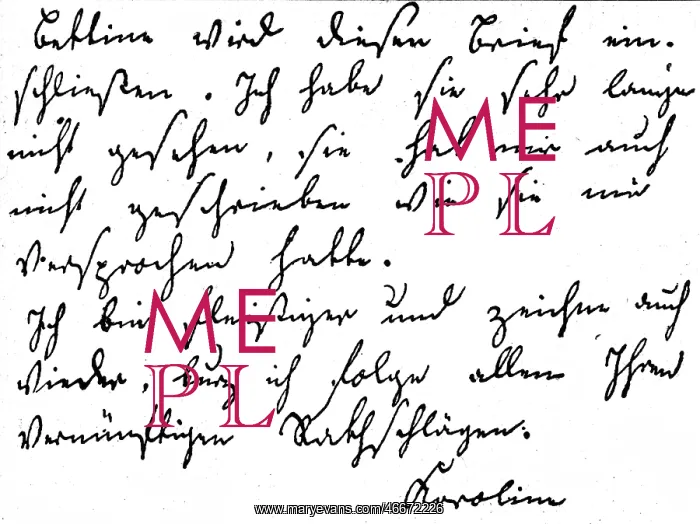 Bettine wird diesen Brief ein-
schließen. Ich habe sie sehr lange
nicht gesehen, sie hat mir auch
nicht geschrieben wie sie mir
versprochen hatte.
Ich bin fleißiger und zeichne auch
wieder, kurz ich folge allen Ihren
vernünftigen Rathschlägen.
Karoline
ME
PL
ME
PL
www.maryevans.com/46672226